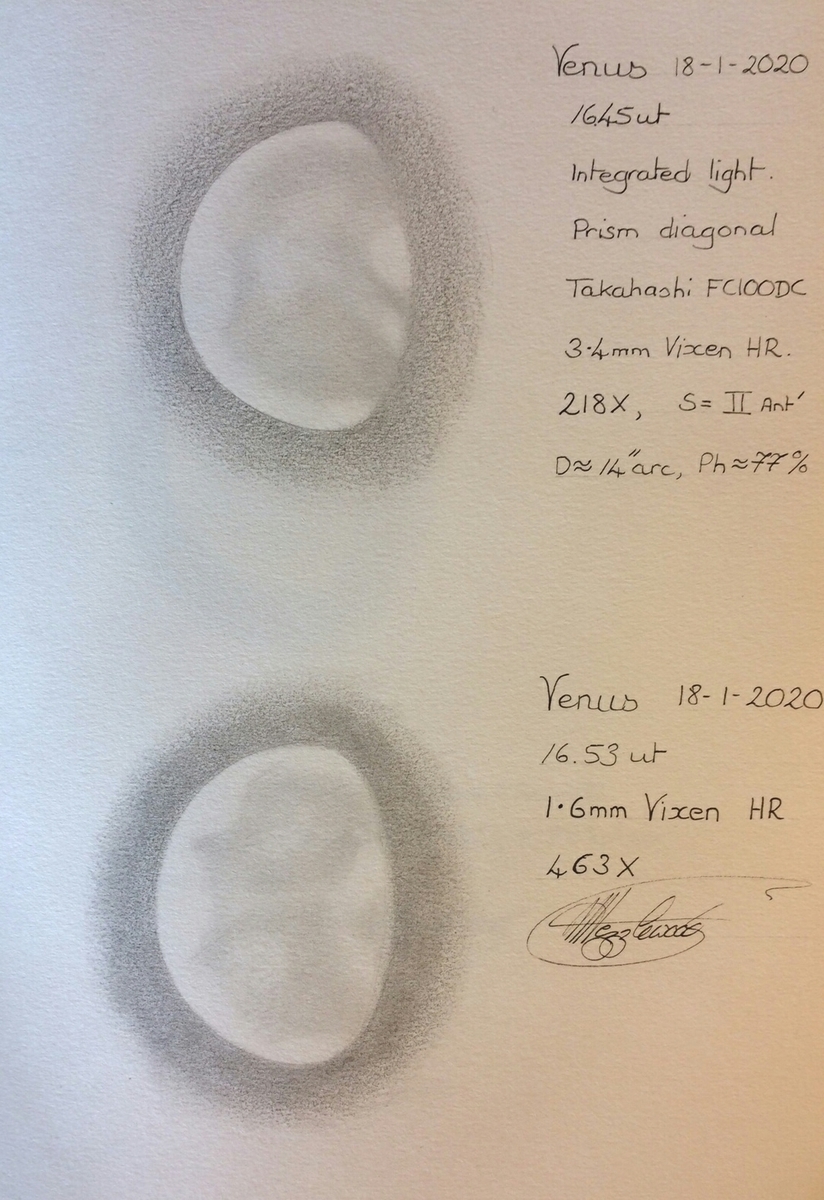 Venus 18-1-2020
1645ut
Integrated light.
Prism diagonal
Takahashi FC100DC
3.4mm Vixen HR.
218X, S= II Ant'
D≈14"arc, Ph≈77%
Venus 18-1-2020
16.53 ut
1.6mm Vixen HR
463X